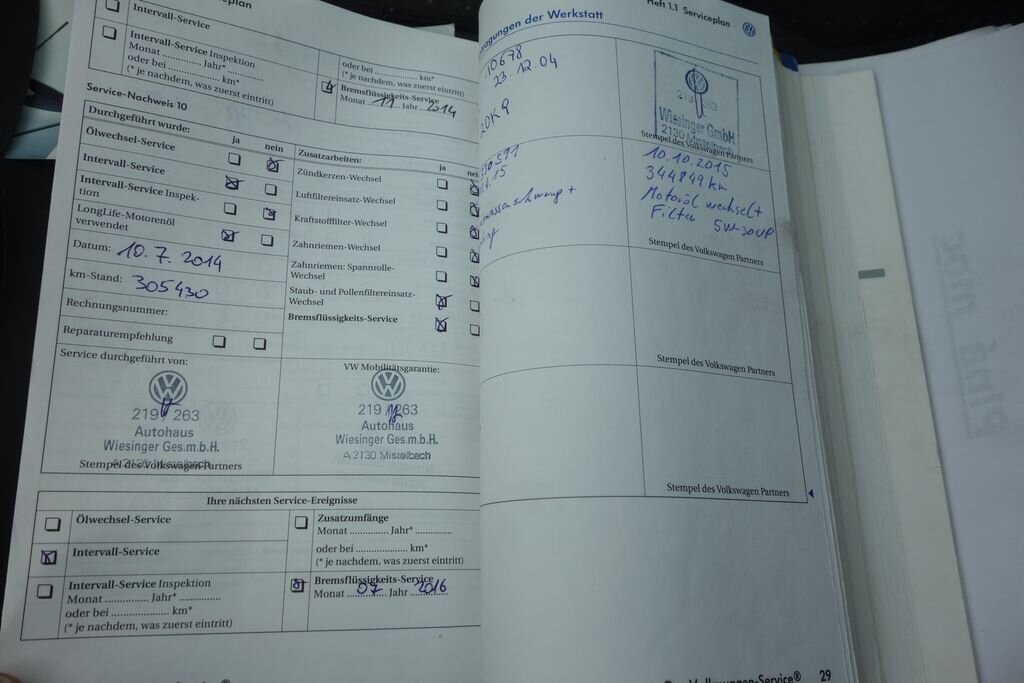 Serviceplan
Intervall-Service
Intervall-Service Inspektion
Monat .............. Jahr* ..............
oder bei ...................... km*
(* je nachdem, was zuerst eintritt)
oder bei .................... km*
(* je nachdem, was zuerst eintritt)
Bremsflüssigkeits-Service
Monat 11 Jahr 2014
Service-Nachweis 10
Durchgeführt wurde: ja nein
Ölwechsel-Service
Intervall-Service
Intervall-Service Inspek-
tion
LongLife-Motorenöl
verwendet
Datum: 10. 7. 2014
km-Stand: 305430
Rechnungsnummer:
Reparaturempfehlung
Zusatzarbeiten: ja
Zündkerzen-Wechsel
Luftfiltereinsatz-Wechsel
Kraftstofffilter-Wechsel
Zahnriemen-Wechsel
Zahnriemen: Spannrolle-
Wechsel
Staub- und Pollenfiltereinsatz-
Wechsel
Bremsflüssigkeits-Service
Service durchgeführt von:
219 263
Autohaus
Wiesinger Ges.m.b.H.
A 2130 Mistelbach
Stempel des Volkswagen Partners
VW Mobilitätsgarantie:
219 263
Autohaus
Wiesinger Ges.m.b.H.
A 2130 Mistelbach
Ihre nächsten Service-Ereignisse
Ölwechsel-Service
Intervall-Service
Intervall-Service Inspektion
Monat .............. Jahr* ..............
oder bei ...................... km*
(* je nachdem, was zuerst eintritt)
Zusatzumfänge
Monat .............. Jahr* ..............
oder bei .................... km*
(* je nachdem, was zuerst eintritt)
Bremsflüssigkeits-Service
Monat 07 Jahr 2016
Heft 1.1 Serviceplan
der Werkstatt
10678
23. 12. 04
219 263
Wiesinger GmbH
2130 Mistelbach
Stempel des Volkswagen Partners
10.10.2015
344849 km
Motoröl wechsel +
Filter 5W-30
Stempel des Volkswagen Partners
Stempel des Volkswagen Partners
Stempel des Volkswagen Partners
Volkswagen-Service® 29